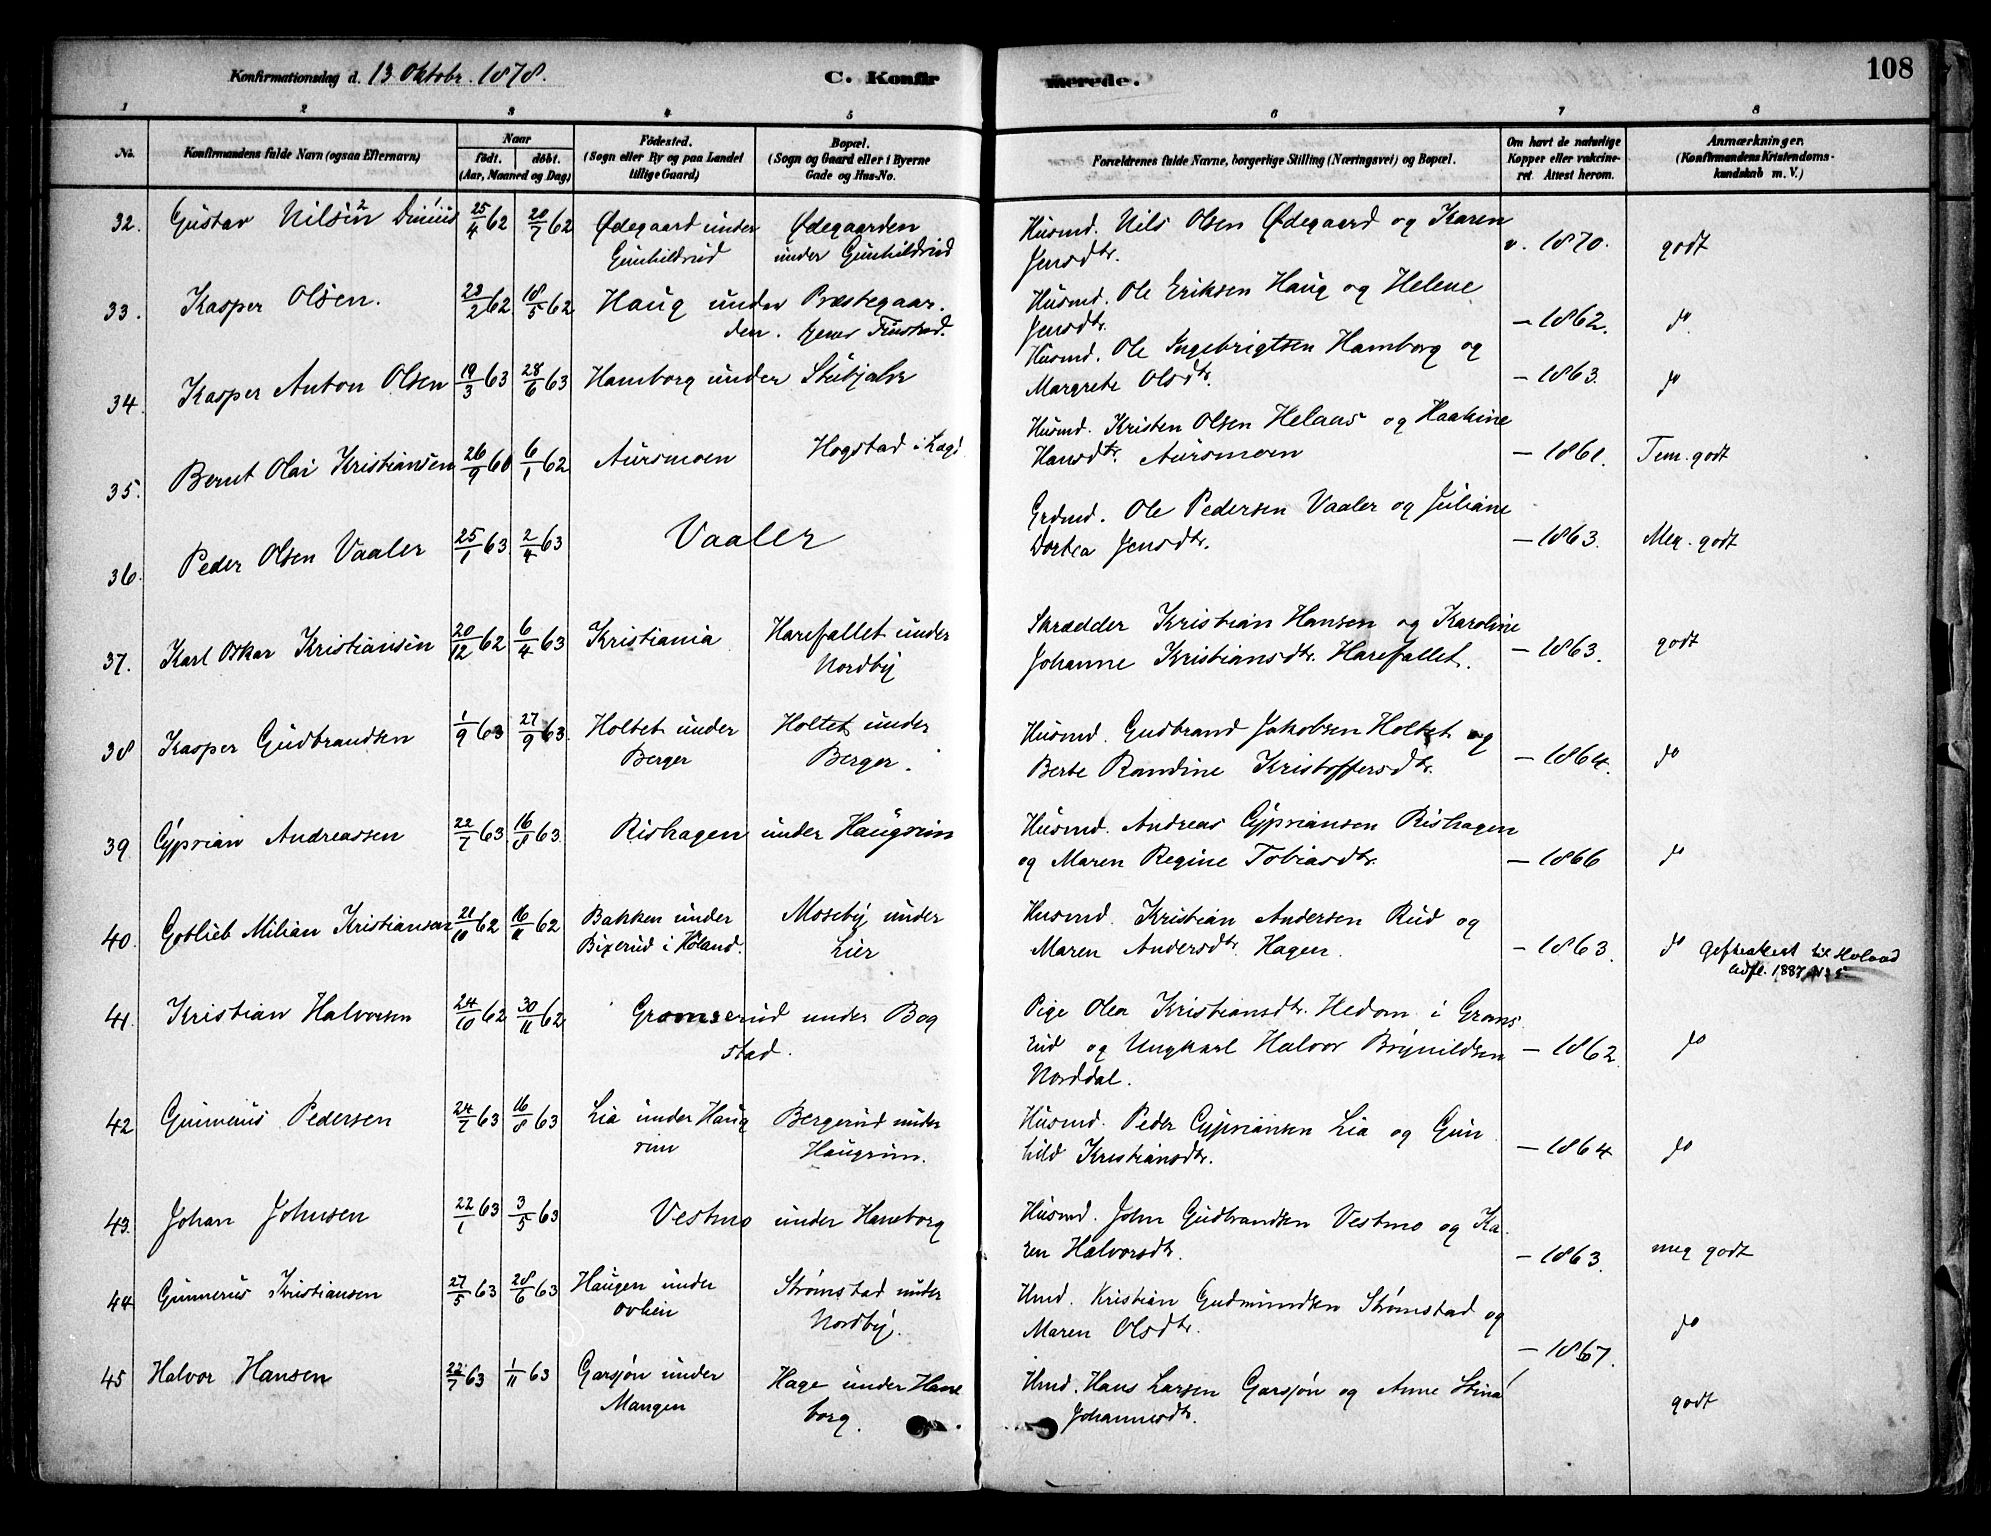 108
Konfirmationsdag d. 13 Oktobr. 1878. C. Konfir merede.
1 2 3 4 5 6 7 8
No. Konfirmandens fulde Navn (ogsaa Efternavn) Naar født. døbt. (Aar, Maaned og Dag) Fødested. (Sogn eller By og paa Landet tillige Gaard) Bopæl. (Sogn og Gaard eller i Byerne Gade og Hus-No. Forældrenes fulde Navne, borgerlige Stilling (Næringsvei) og Bopæl. Om havt de naturlige Kopper eller vakcineret. Attest herom. Anmærkninger. (Konfirmandens Kristendomskundskab m. V.)
32. Gustav Nilsen 25/4 62 20/7 62 Ødegaard under Ødegaarden Husmd. Nils Olsen Ødegaard og Karen v. 1870. godt
Gunhildrud under Gunhildrud Jensdtr.
33. Kasper Olsen. 23/2 62 18/5 62 Haug under Præstegaar- Husmd. Ole Eriksen Haug og Helene — 1862. do
den. Jensdtr.
34. Kasper Anton Olsen 19/3 63 28/6 63 Hamborg under Husmd. Ole Ingebrigtsen Hamborg og — 1863. do
Margrete Olsdtr.
35. Bernt Olai Kristiansen 26/9 60 6/1 62 Aursmoen Hogstad i Husmd. Kristen Olsen Helaas og Haakine — 1861. Tem. godt
Hansdtr. Aursmoen
36. Peder Olsen Vaaler 25/1 63 2/4 63 Vaaler Grdmd. Ole Pedersen Vaaler og Juliane — 1863. Meg. godt
Dortea Jensdtr.
37. Karl Oskar Kristiansen 20/12 62 6/4 63 Kristiania Harefallet under Skrædder Kristian Hansen og Karoline — 1863. godt
Nordby Johanne Kristiansdtr. Harefallet.
38 Kasper Gudbrandsen 1/9 63 27/9 63. Holtet under Holtet under Husmd. Gudbrand Jakobsen Holtet og — 1864. do
Berger Berger. Berte Randine Kristoffersdtr.
39. Cyprian Andreassen 22/7 63 16/8 63. Rishagen under Haugrim Husmd. Andreas Cypriansen Rishagen — 1866 do
og Maren Regine Tobiasdtr.
40. Gotlieb Milian Kristiansen 21/10 62 16/11 62 Bakken under Moseby under Husmd. Kristian Andersen Rud og — 1863. do
Bixerud i Høland. Lier Maren Andersdtr. Hagen. Udfl. 1887 № 5
41. Kristian Halvorsen 24/10 62 30/11 62 Gromserud under Bog Pige Olea Kristiansdtr. Hedom i Groms — 1862. do
stad. rud og Ungkarl Halvor Brynildsen
Norddal.
42 Gunnerius Pedersen 24/7 63 16/8 63 Lia under Haug Bergerud under Husmd. Peder Cypriansen Lia og Gun — 1864 do
rim Haugrim. hild Kristiansdtr.
43. Johan Johnsen 22/1 63 3/5 63 Vestmo under Haneborg Husmd. John Gudbrandsen Vestmo og Ka- — 1863. meg godt
ren Halvorsdtr.
44. Gunnerus Kristiansen 27/5 63 28/6 63 Haugen under Strømstad under Hmd. Kristian Gudmundsen Strømstad og — 1867. do
ovlien Nordby. Maren Olsdtr.
45 Halvor Hansen 22/7 63 1/11 63 Garsjøn under Hage under Hane Hmd. Hans Larsen Garsjøn og Anne Stina godt
Mangen borg. Johannesdtr.